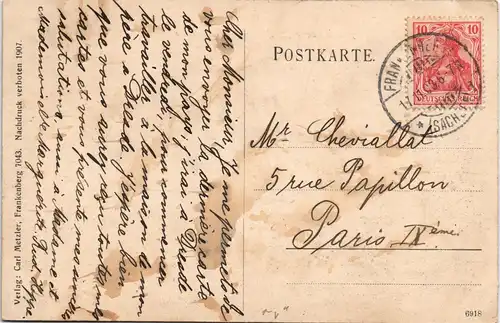 Cher Monsieur, Je me permets de
vous envoyer la dernière carte
de mon pays, j'irai à Dresde
le vendredi, pour commencer
travailler à la maison de mon
père à Dresde. J'espère bien
que vous aurez reçu toutes mes
cartes et vous présente mes sincères
salutations, aussi à Madame et
Mademoiselle Marguerite,
Verlag: Carl Metzler, Frankenberg 7043. Nachdruck verboten 1907.
POSTKARTE.
10 10
DEUTSCHES REICH
FRANKENBERG
(SACHSEN)
Mr Cheviallat
5 rue Papillon
Paris IXième.
6918